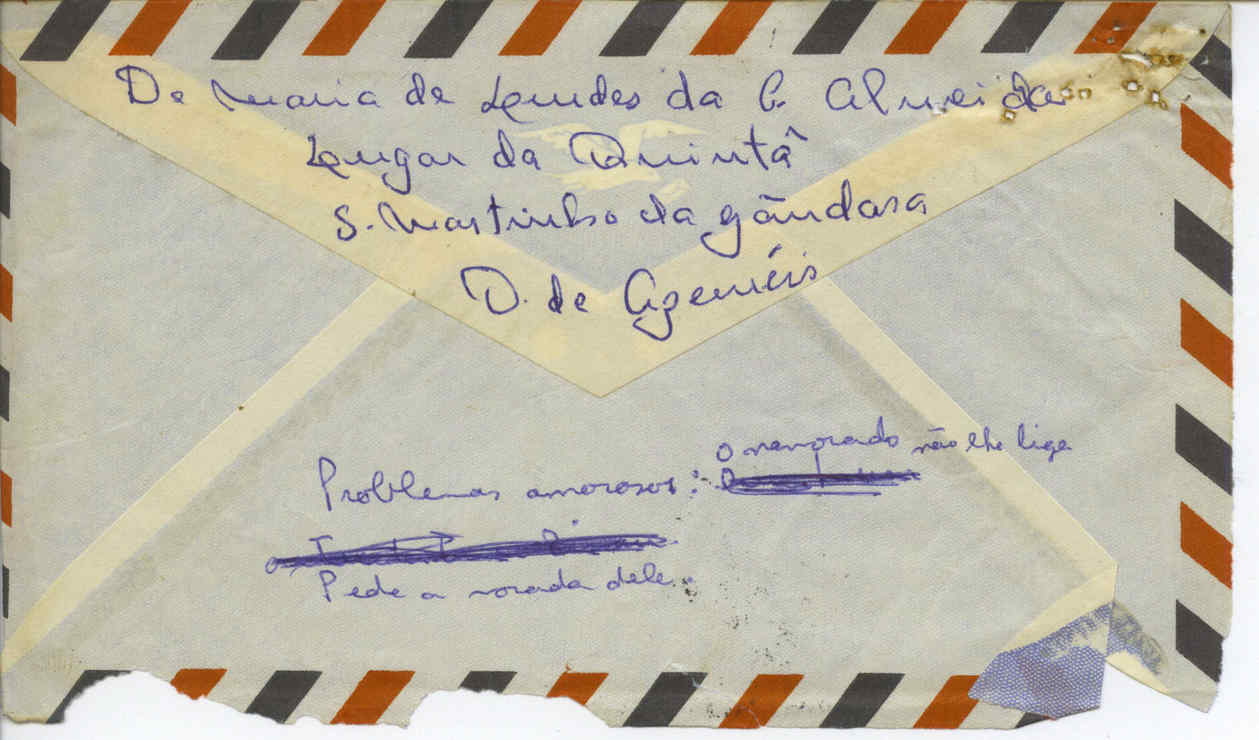 De Maria de Lourdes da C. Almeida
Lugar da Quintâ
S. Martinho da gândara
D. de Azeméis
O namorado não lhe liga
Problemas amorosos:
Pede a morada dele.